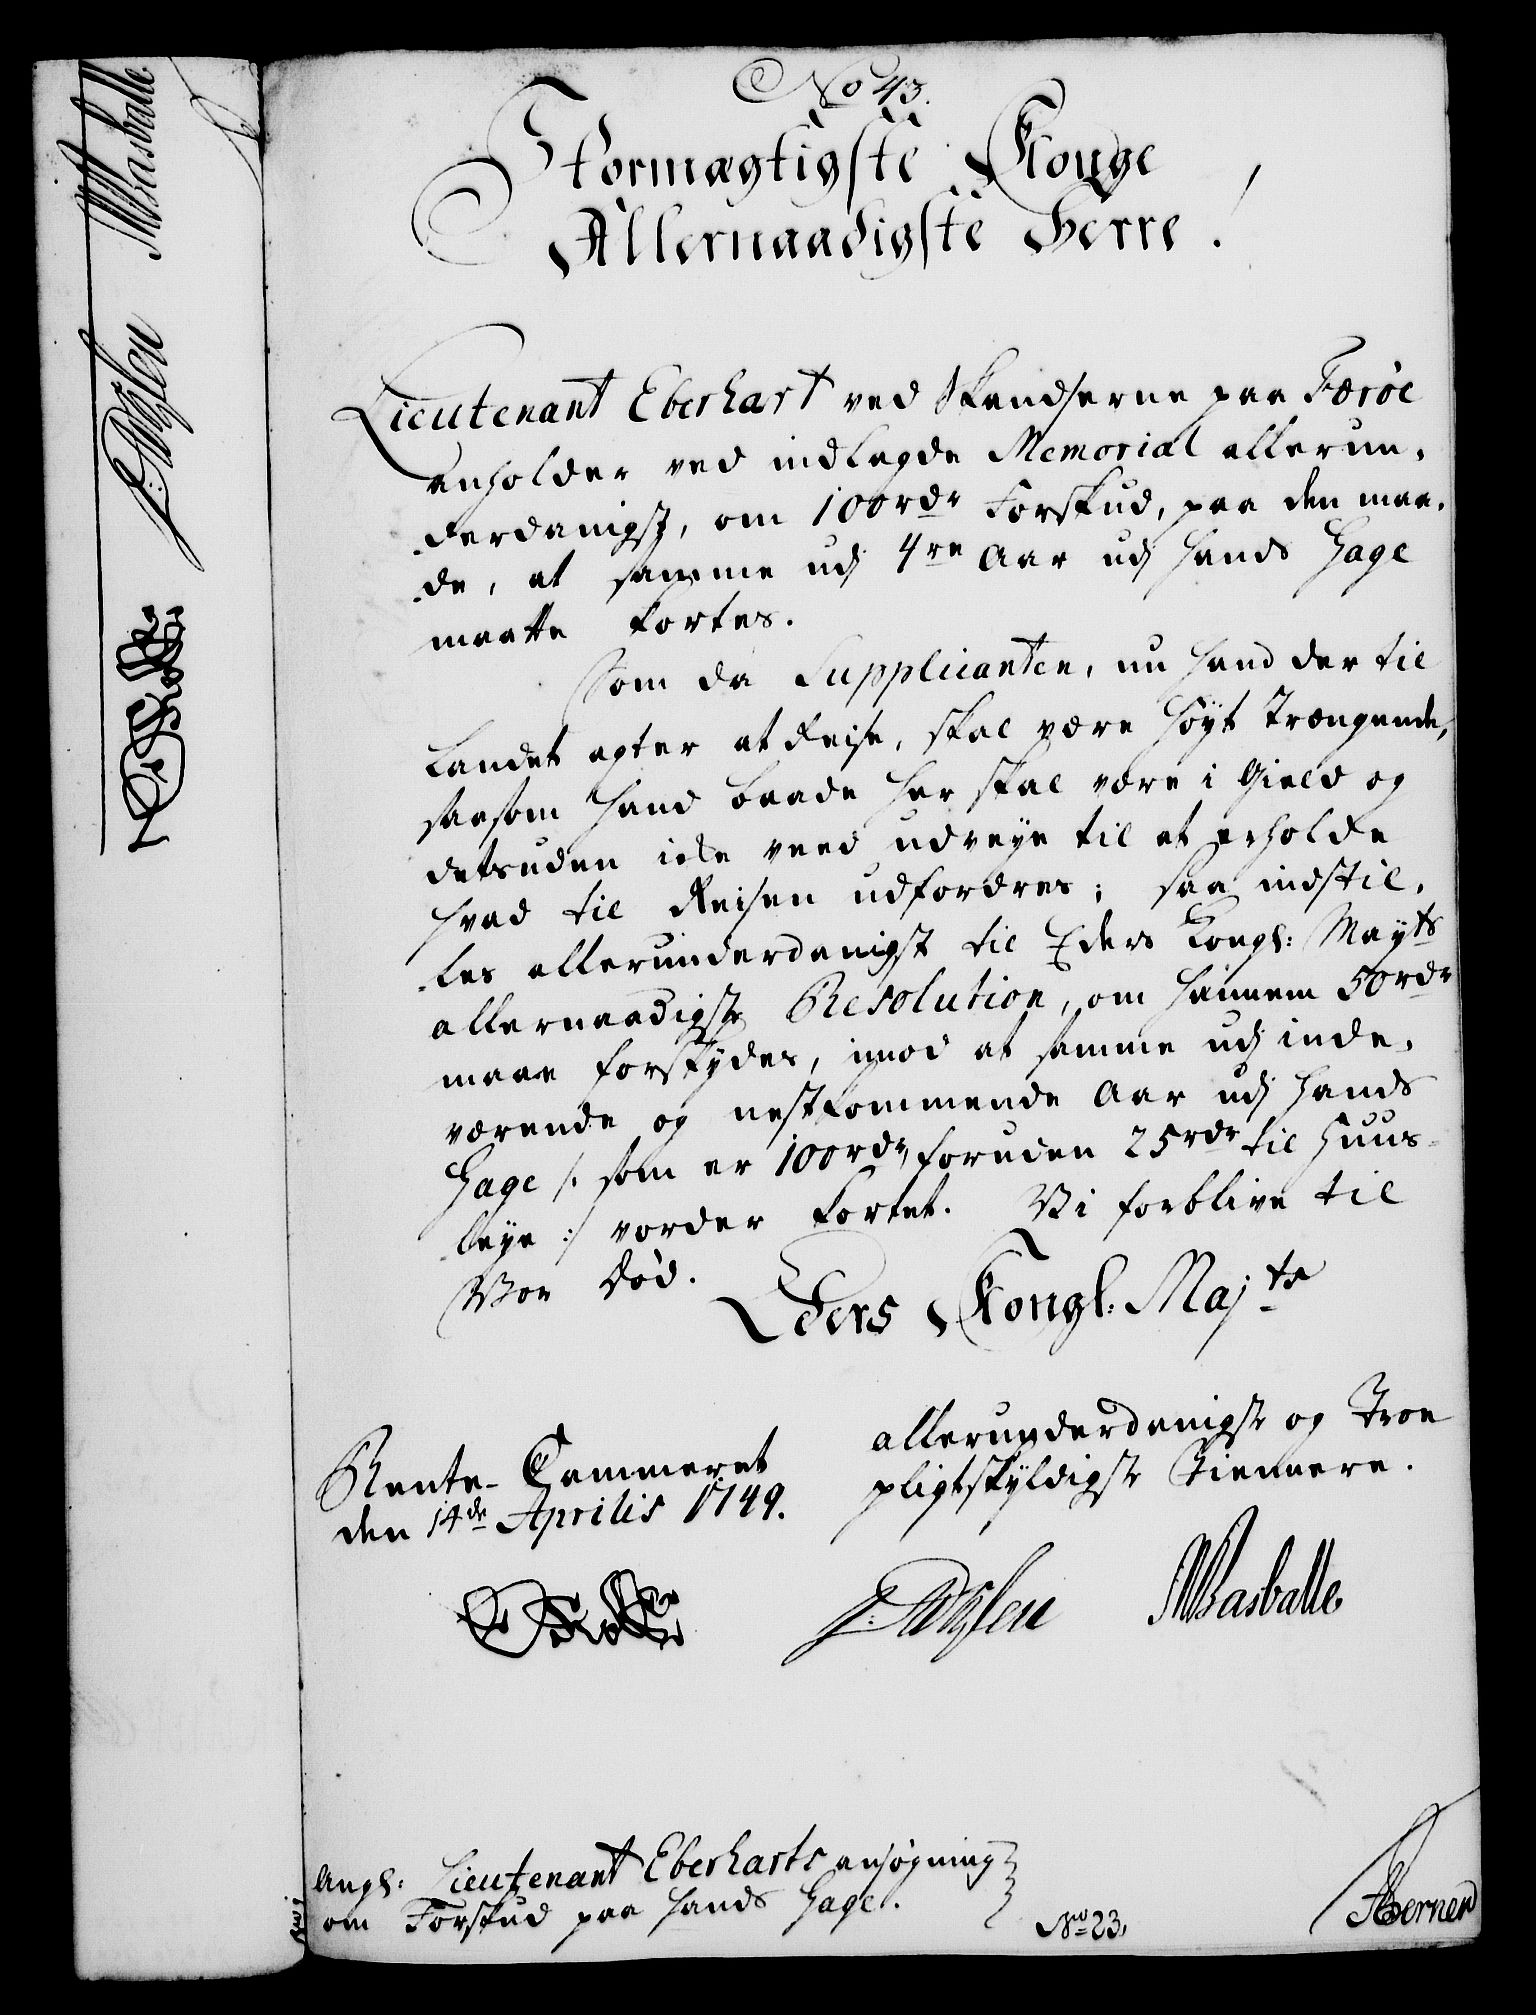 No 43.
Stormægtigste Konge
Allernaadigste Herre!
Lieutenant Eberhart ved Skandserne paa Færøe
anholder ved indlagde Memorial allerun-
derdanigst, om 100 rdr Forskud, paa den maa-
de, at samme udj 4re Aar udj hands Gage
maatte kortes.
Som da Supplicanten, nu hand der til
Landet agter at Reise, skal være høyt trængende,
saasom hand baade her skal være i Gield og
detsuden icke veed udveye til at erholde
hvad til Reisen udfordres; saa indstil-
les allerunderdanigst til Eders Kongl: Mayts
allernaadigste Resolution, om hannem 50 rdr
maae forskydes, imod at samme udj inde-
værende og nestkommende Aar udj hands
Gage /: som er 100 rdr, foruden 25 rdr til Huus-
leye :/ vorder kortet. Vi forblive til
Vor Død.
Eders Kongl: Majts
allerunderdanigste og Troe
pligtskyldigste Tiennere.
Rente-Cammeret
den 14de Aprilis 1749.
JWBasballe
Angl: Lieutenant Eberharts ansøgning
om Forskud paa hands Gage.
No 23.